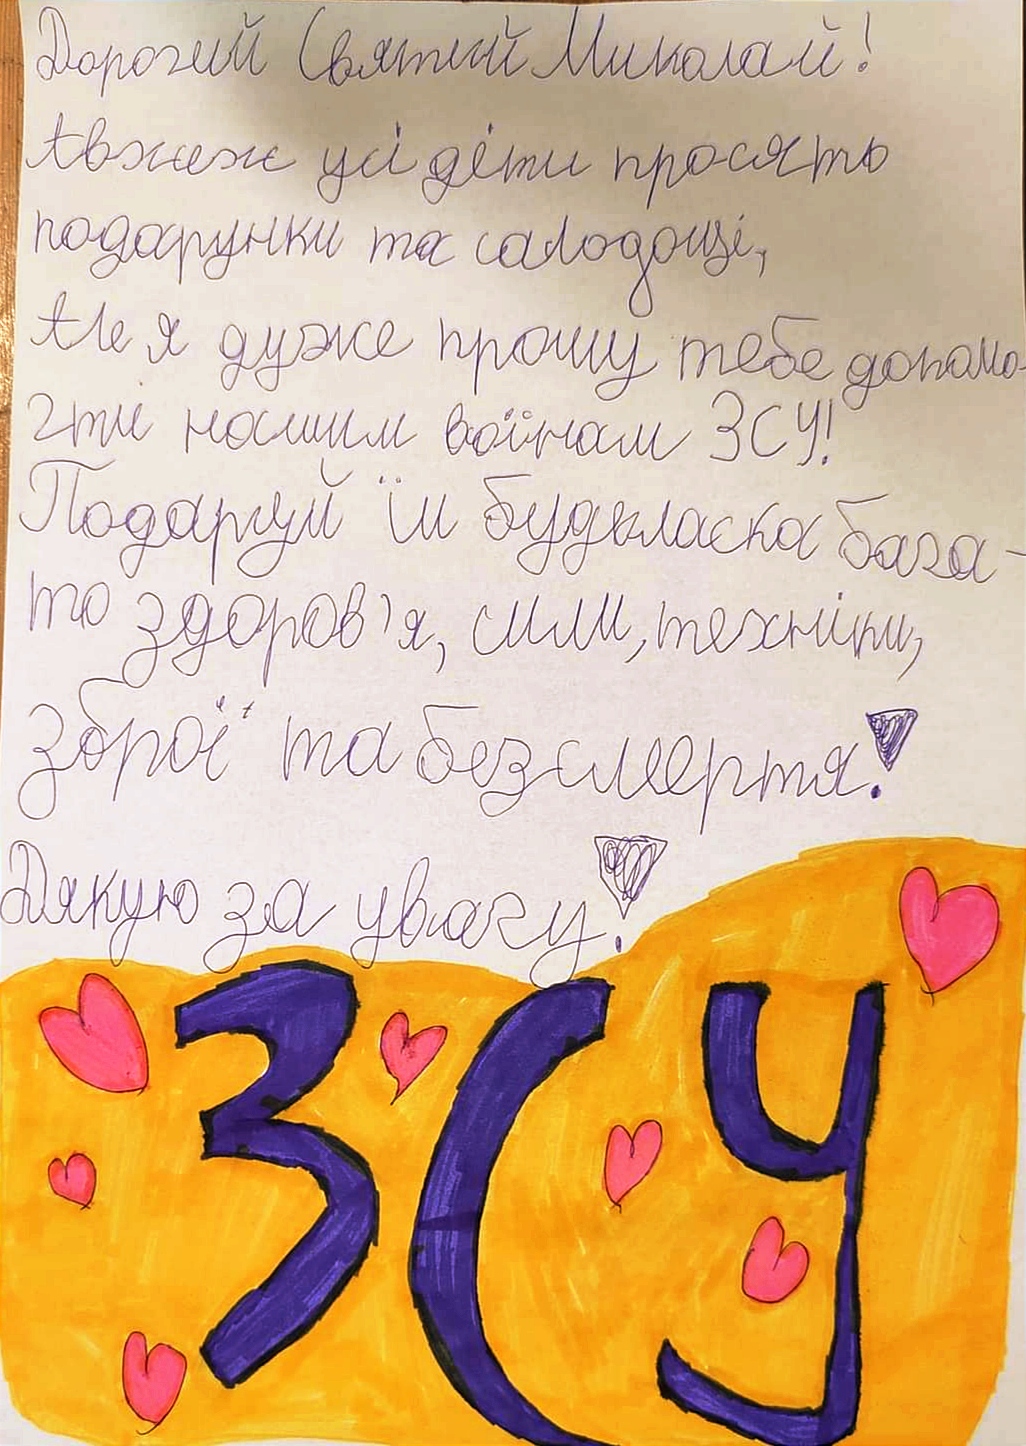 Дорогий Святий Миколай!
Авжеж усі діти просять
подарунки та салодощі,
Але я дуже прошу тебе допомо-
гти нашим воїнам ЗСУ!
Подаруй їм будьласка бага-
то здоров'я, сили, техніки,
зброї та безсмертя!
Дякую за увагу!
ЗСУ